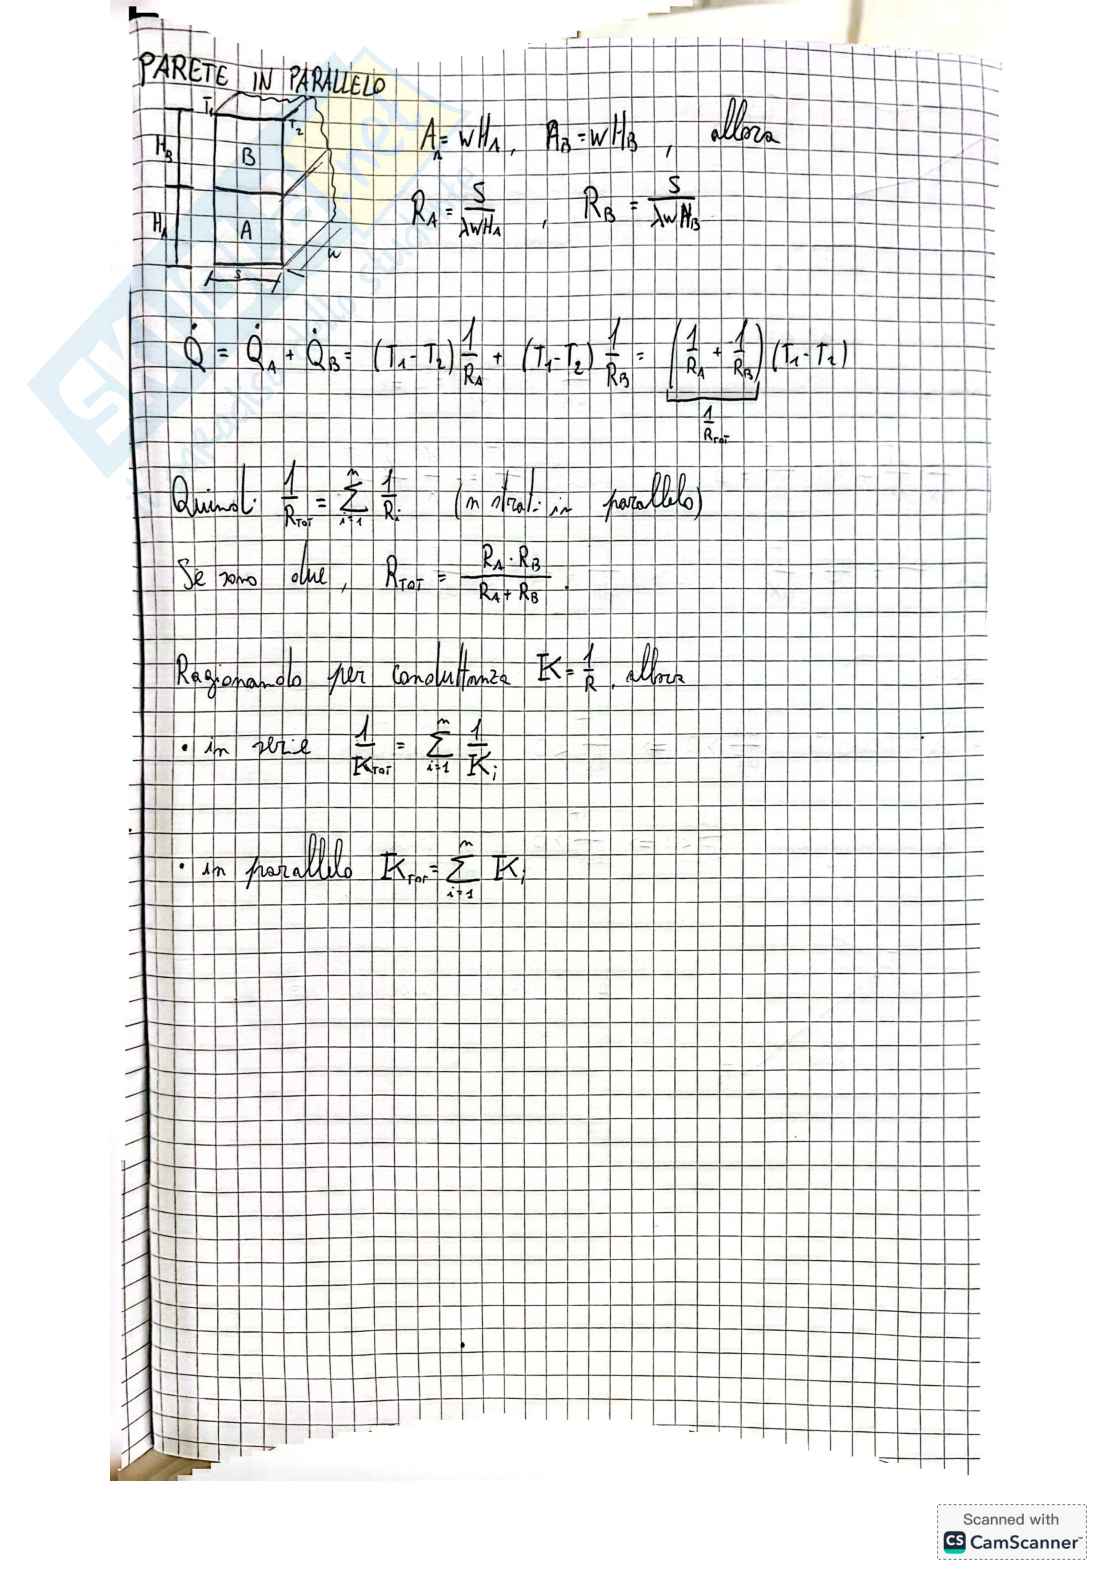 PARETE IN PARALLELO
T₁
T₂
H_B
B
H_A
A
s
w
A_A = wH_A, A_B = wH_B, allora
R_A = s/(λwH_A), R_B = s/(λwH_B)
Q̇ = Q̇_A + Q̇_B = (T₁-T₂) 1/R_A + (T₁-T₂) 1/R_B = (1/R_A + 1/R_B)(T₁-T₂)
1/R_TOT
Quindi 1/R_TOT = Σ_{i=1}^{n} 1/R_i (n strati in parallelo)
Se sono due, R_TOT = (R_A · R_B)/(R_A + R_B).
Ragionando per conduttanza K = 1/R, allora
• in serie 1/K_TOT = Σ_{i=1}^{n} 1/K_i
• in parallelo K_TOT = Σ_{i=1}^{n} K_i
Scanned with
CS CamScanner